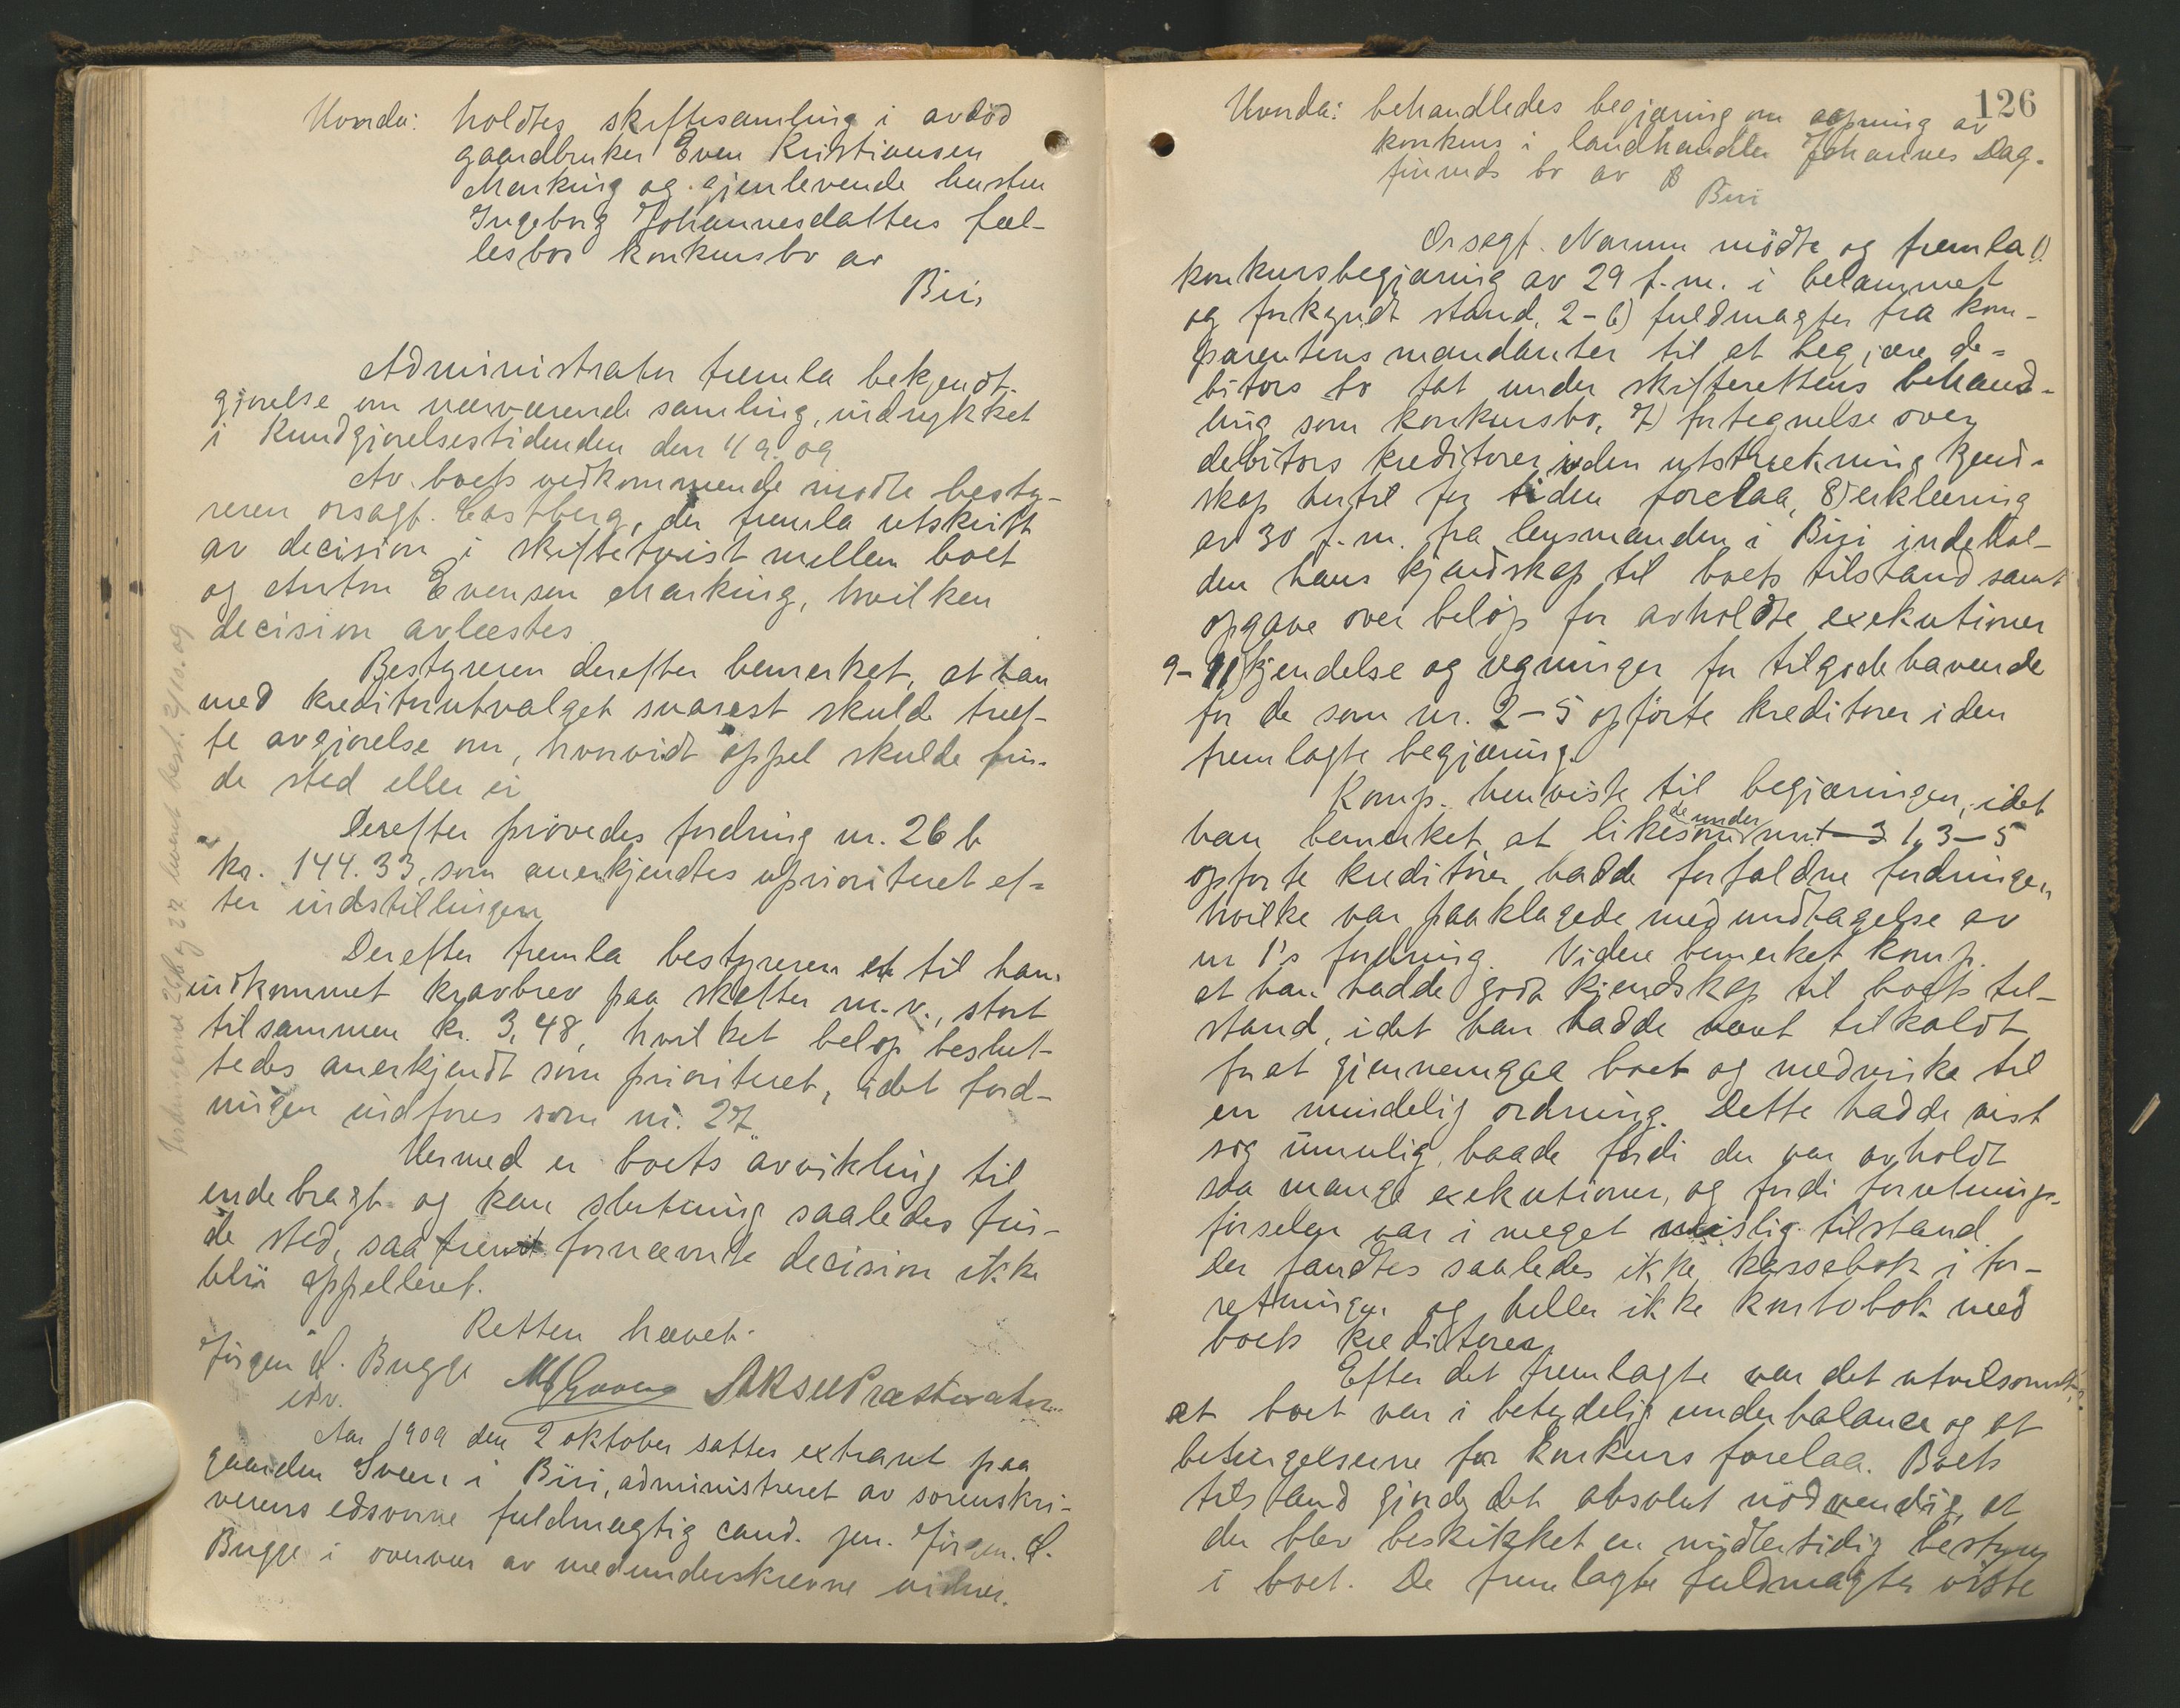 Hvorda: holdtes skiftesamling i avdöd
gaardbruker Even Kristiansen
Marking og gjenlevende hustru
Ingeborg Johannesdatters fæl-
lesbos konkursbo av
Biri,
Administrator fremla bekjendt-
gjørelse om nærværende samling, indrykket
i Kundgjørelsestidenden den
Av boets vedkommende mødte besty-
reren orsagf. Castberg, der fremla utskrift
av decision i skiftetvist mellem boet
og Anton Evensen Marking, hvilken
decision avlæstes.
Bestyreren derefter bemerket, at han
med kreditorutvalget snarest skulde tref-
fe avgjørelse om, hvorvidt appel skulde fin-
de sted eller ei
Derefter prövedes fordring nr. 26 b
kr. 144.33, som anerkjendtes uprioritert ef-
ter indstillingen
Derefter fremla bestyreren et til ham
indkommet kravbrev paa skatter m.v., stort
tilsammen kr. 3,48, hvilket beløp beslut-
tedes anerkjendt som prioritert, idet ford-
ringen indføres som nr. 27.
Hermed er boets avvikling til
endebragt og kan slutning saaledes fin-
de sted, saafremt fornævnte decision ikke
blir appelleret.
Retten hævet.
Jörgen S. Bugge
edsv.
Aar 1909 den 2 oktober sattes extraret paa
gaarden Sveen i Biri, administreret av sorenskri-
verens edsvorne fuldmægtig cand. jur. Jörgen S.
Bugge i overvær av medunderskrevne vidner.
126
Hvorda: behandledes begjæring om aapning av
konkurs i landhandler Johannes Dag-
finruds bo av B
Biri
Orsagf. Narum mödte og fremla 1)
konkursbegjæring av 29 f.m. i belammet
og forkyndt stand, 2-6) fuldmagter fra kom-
parentens mandanter til at begjære de-
bitors bo tat under skifterettens behand-
ling som konkursbo, 7) fortegnelse over
debitors kreditorer i den utstrekning kjend-
skap hertil for tiden forelaa, 8) erklæring
av 30 f.m. fra lensmanden i Biri indehol-
den hans kjendskap til boets tilstand samt
opgave over beløp for avholdte exekutioner
9-11) kjendelse og regninger for tilgodehavende
for de som nr. 2-5 opførte kreditorer i den
fremlagte begjæring.
Komp. henviste til begjæringen, idet
de under
han bemerket at likesom nr. 1, 3-5
opførte kreditorer hadde forfaldne fordringer,
hvilke var paaklagede med undtagelse av
nr 1's fordring. Videre bemerket komp.
at han hadde godt kjendskap til boets til-
stand, idet han hadde vært tilkaldt
for at gjennemgaa boet og medvirke til
en mindelig ordning. Dette hadde vist
sig umulig, baade fordi der var avholdt
saa mange exekutioner, og fordi forretnings-
førselen var i meget mislig tilstand.
Der fandtes saaledes ikke kassebok i for-
retningen og heller ikke kontobok med
boets kreditorer
Efter det fremlagte var det utvilsomt,
at boet var i betydelig underbalance og at
betingelserne for konkurs forelaa. Boets
tilstand gjorde det absolut nödvendig, at
der blev beskikket en midlertidig bestyrer
i boet. De fremlagte fuldmagter viste